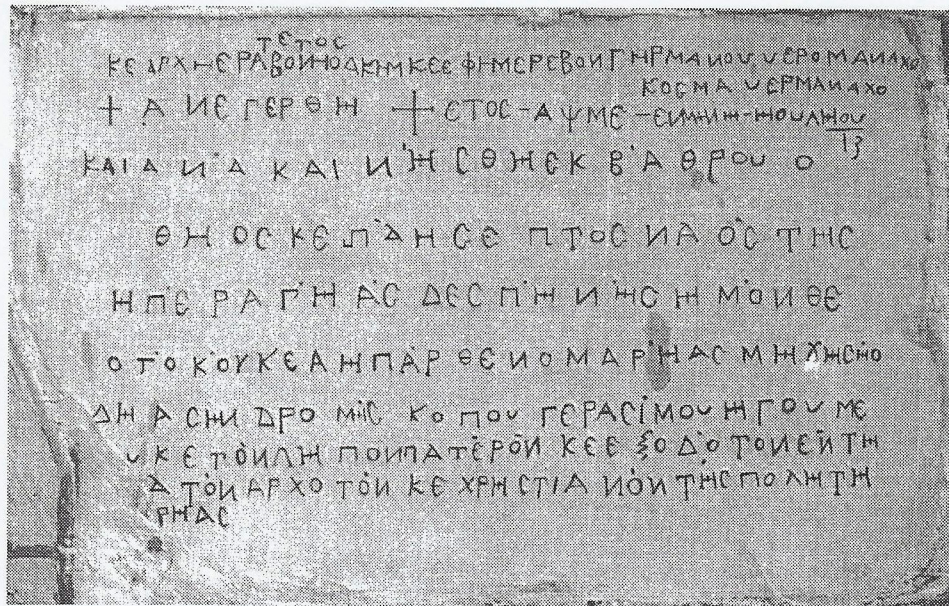 ΤΕΤΟΣ
ΚΕ ΑΡΧΗΕΡΑΒΟΙΝΟΔΚΗΜ ΚΕ ΕΦΗΜΕΡΕΒΟΝ ΓΗΡΜΑΝΟΥ ΥΕΡΟΜΑΝΑΧΟ
ΚΟСΜΑ ΥΕΡΜΑΝΑΧΟ
+ ΑΝΕΓΕΡΘΗ + ΕΤΟС - ΑΨΜΕ - ΗΟΥΛΗΟΥ
13
ΚΑΙ ΑΝΑΚΑΙΝΗСΘΗ ΕΚ ΒΑΘΡΟΥ Ο
ΘΗΟС ΚΕ ΠΑΗСΕΠΤΟС ΝΑΟС ΤΗС
ΗΠΕΡΑΓΗΑС ΔΕСΠΗΝΗС ΗΜΟΝ ΘΕ
ΟΤΟΚΟΥ ΚΕ ΑΗΠΑΡΘΕΝΟ ΜΑΡΗΑС ΜΗΧΗСΝΟ
ΔΗΑ СΗΝΔΡΟΜΗС ΚΟΠΟΥ ΓΕΡΑСΙΜΟΥ ΗΓΟΥΜΕ
ΥΚΕ ΤΟΝ ΛΗΠΟΝ ΠΑΤΕΡΟΝ ΚΕ ΕΞΟΔΟ ΤΟΝ ΕΝ ΤΗ
Α ΤΟΝ ΑΡΧΟΤΟΝ ΚΕ ΧΡΗСΤΙΑΝΟΝ ΤΗС ΠΟΛΗΤΗ
ΡΗΑС